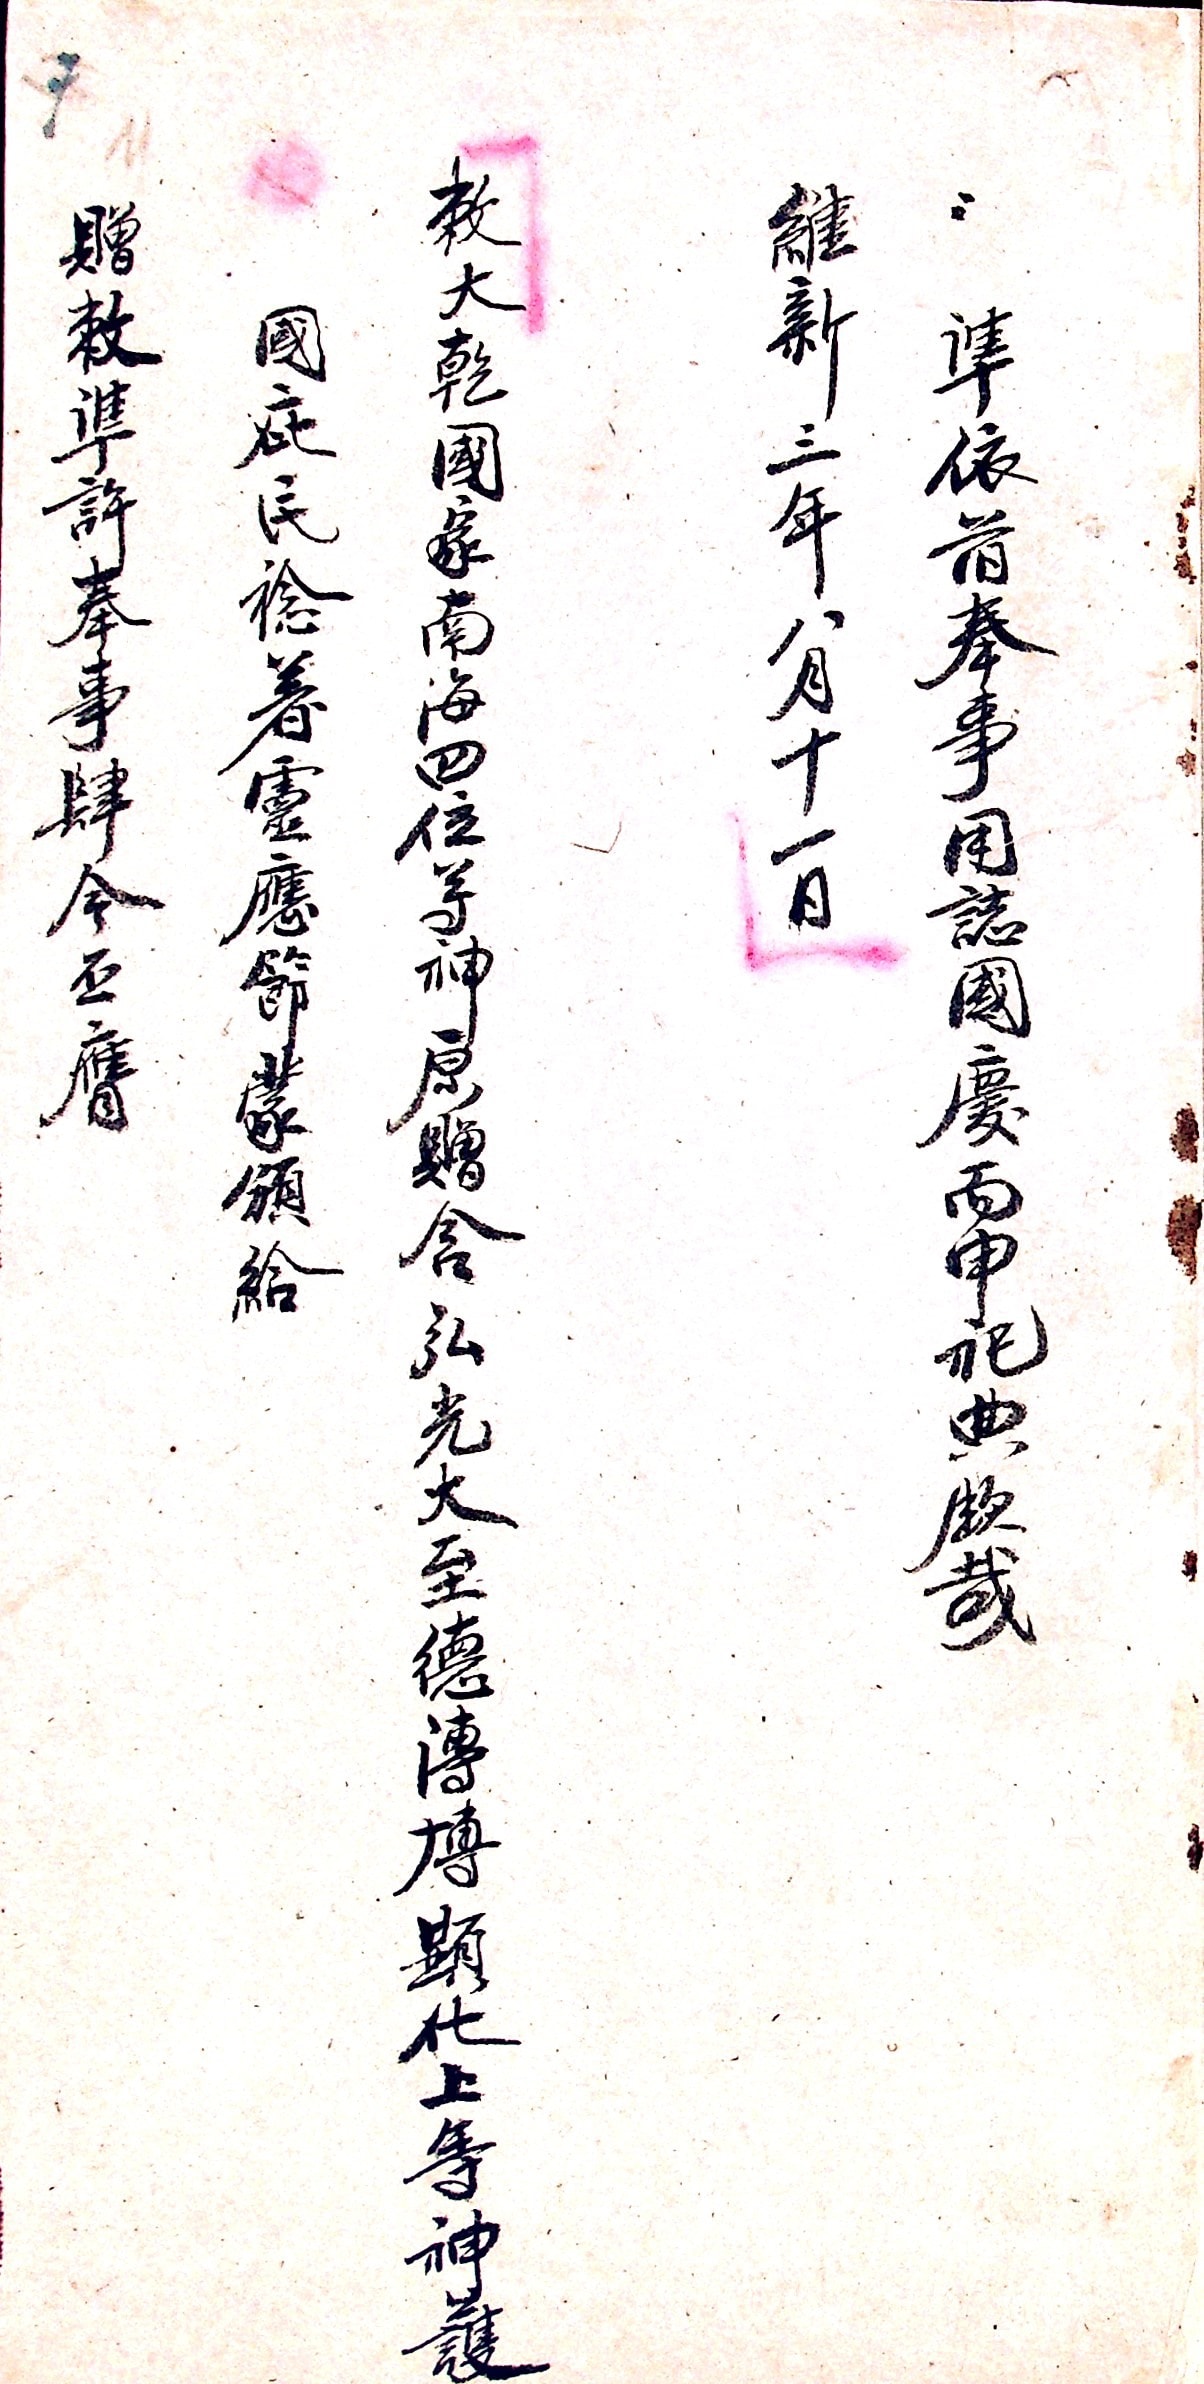 準依舊奉事用誌國慶而申祀典欽哉
維新三年八月十一日
敕大乾國家南海四位等神原贈含弘光大至德溥博顯化上等神護
國庇民稔著靈應節蒙頒給
贈敕準許奉事肆今丕膺